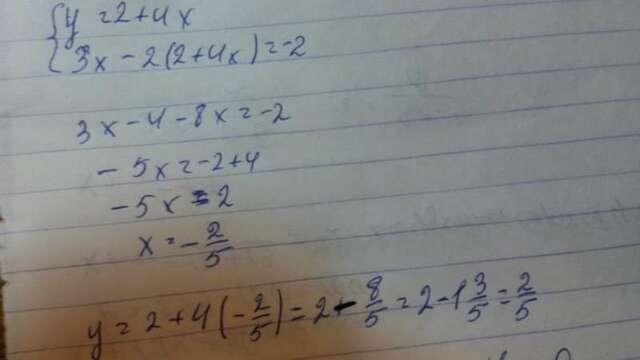 {y = 2 + 4x
{3x - 2(2 + 4x) = -2
3x - 4 - 8x = -2
- 5x = -2 + 4
- 5x = 2
x = - 2/5
y = 2 + 4(- 2/5) = 2 - 8/5 = 2 - 1 3/5 = 2/5